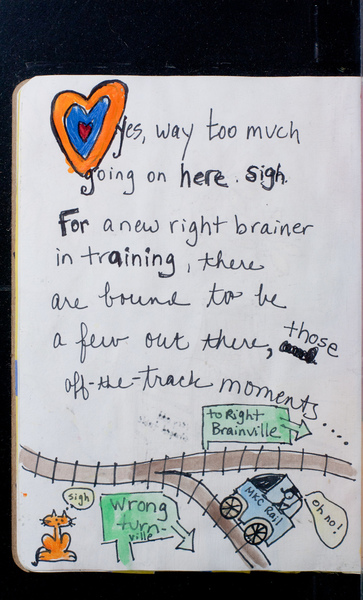 yes, way too much
going on here. sigh.
For a new right brainer
in training, there
are bound to be
a few out there, those
off-the-track moments....
to Right
Brainville
sigh
Wrong
turn-
ville
MKC Rail
oh no!